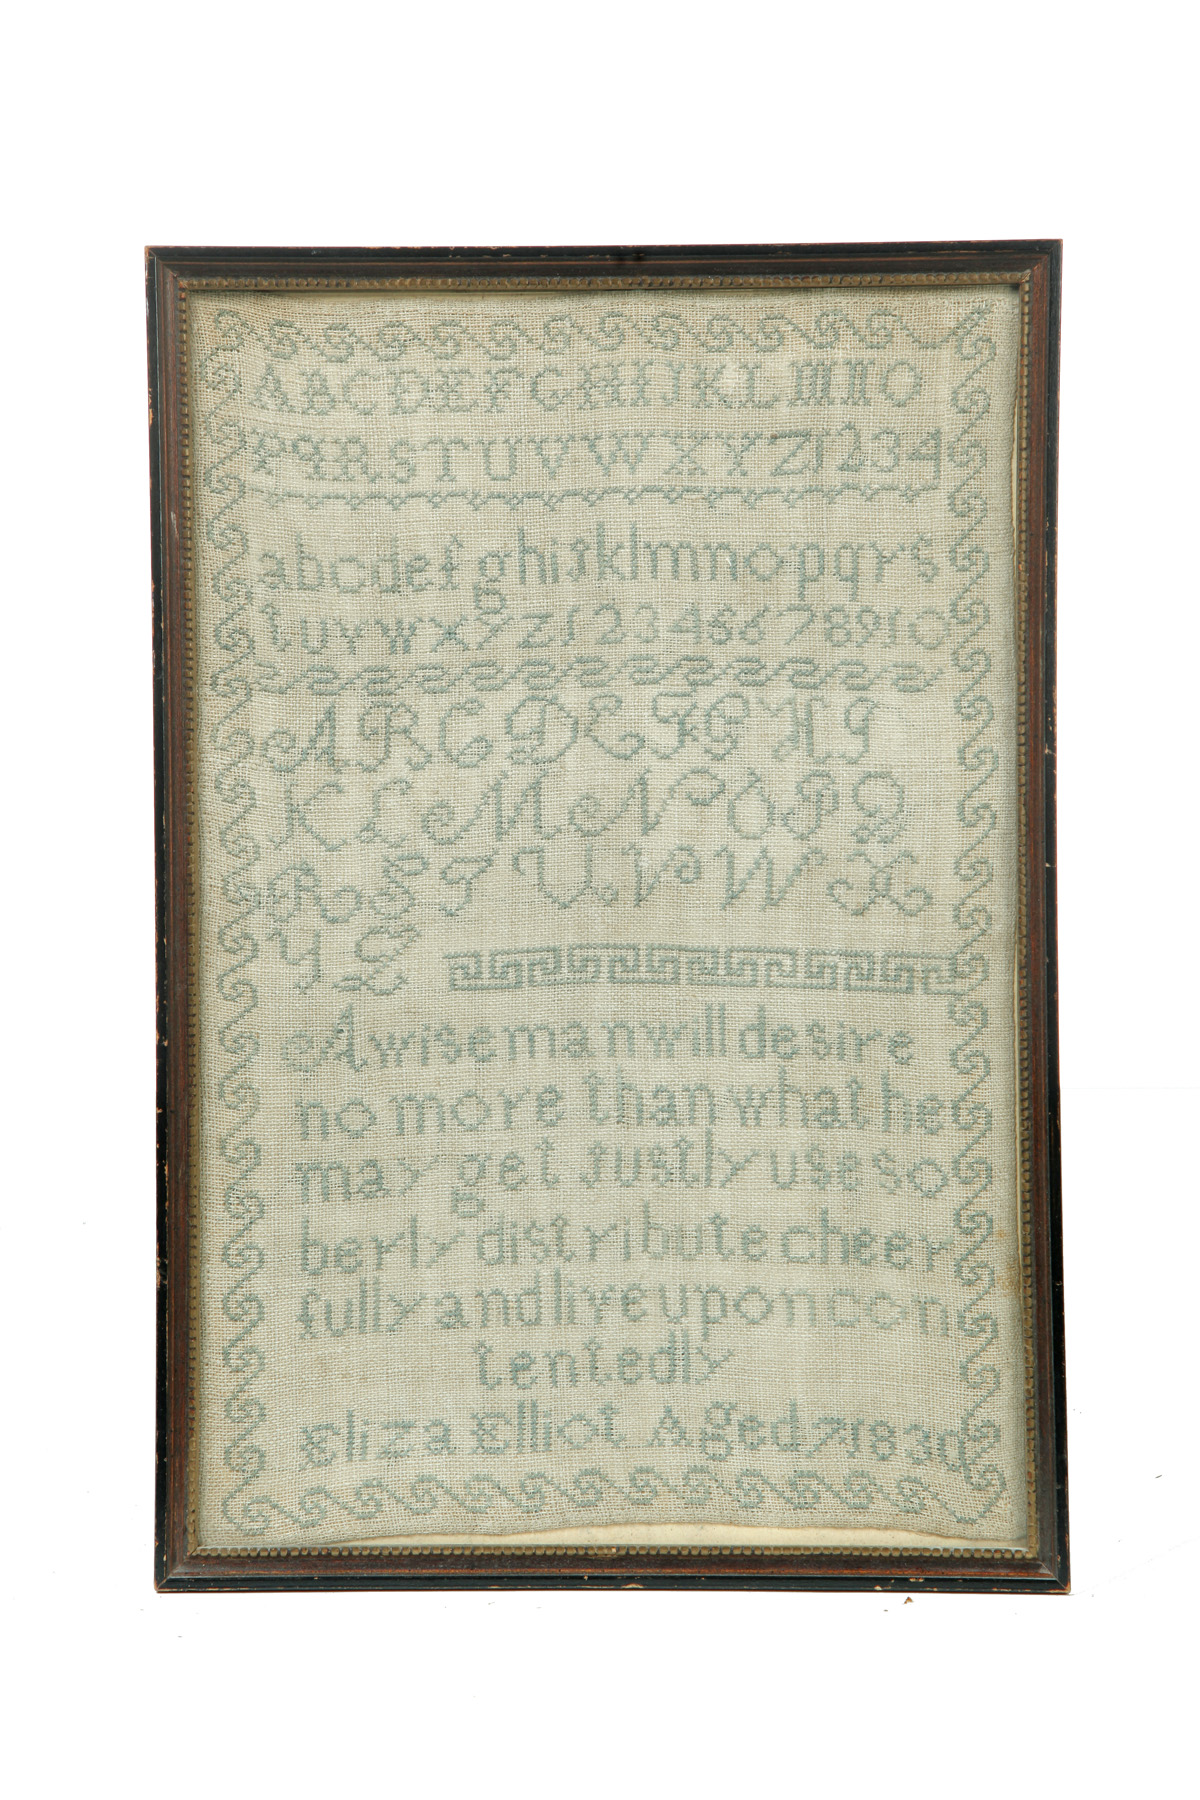 ABCDEFGHIJKLMNO
PQRSTUVWXYZ1234
abcdefghijklmnopqrs
tuvwxyz12345678910
ABCDEFGHI
KLMNOPQ
RSTUVWX
YZ
A wise man will desire
no more than what he
may get justly use so
berly distribute cheer
fully and live upon con
tentedly
Eliza Elliot Aged 7 1830